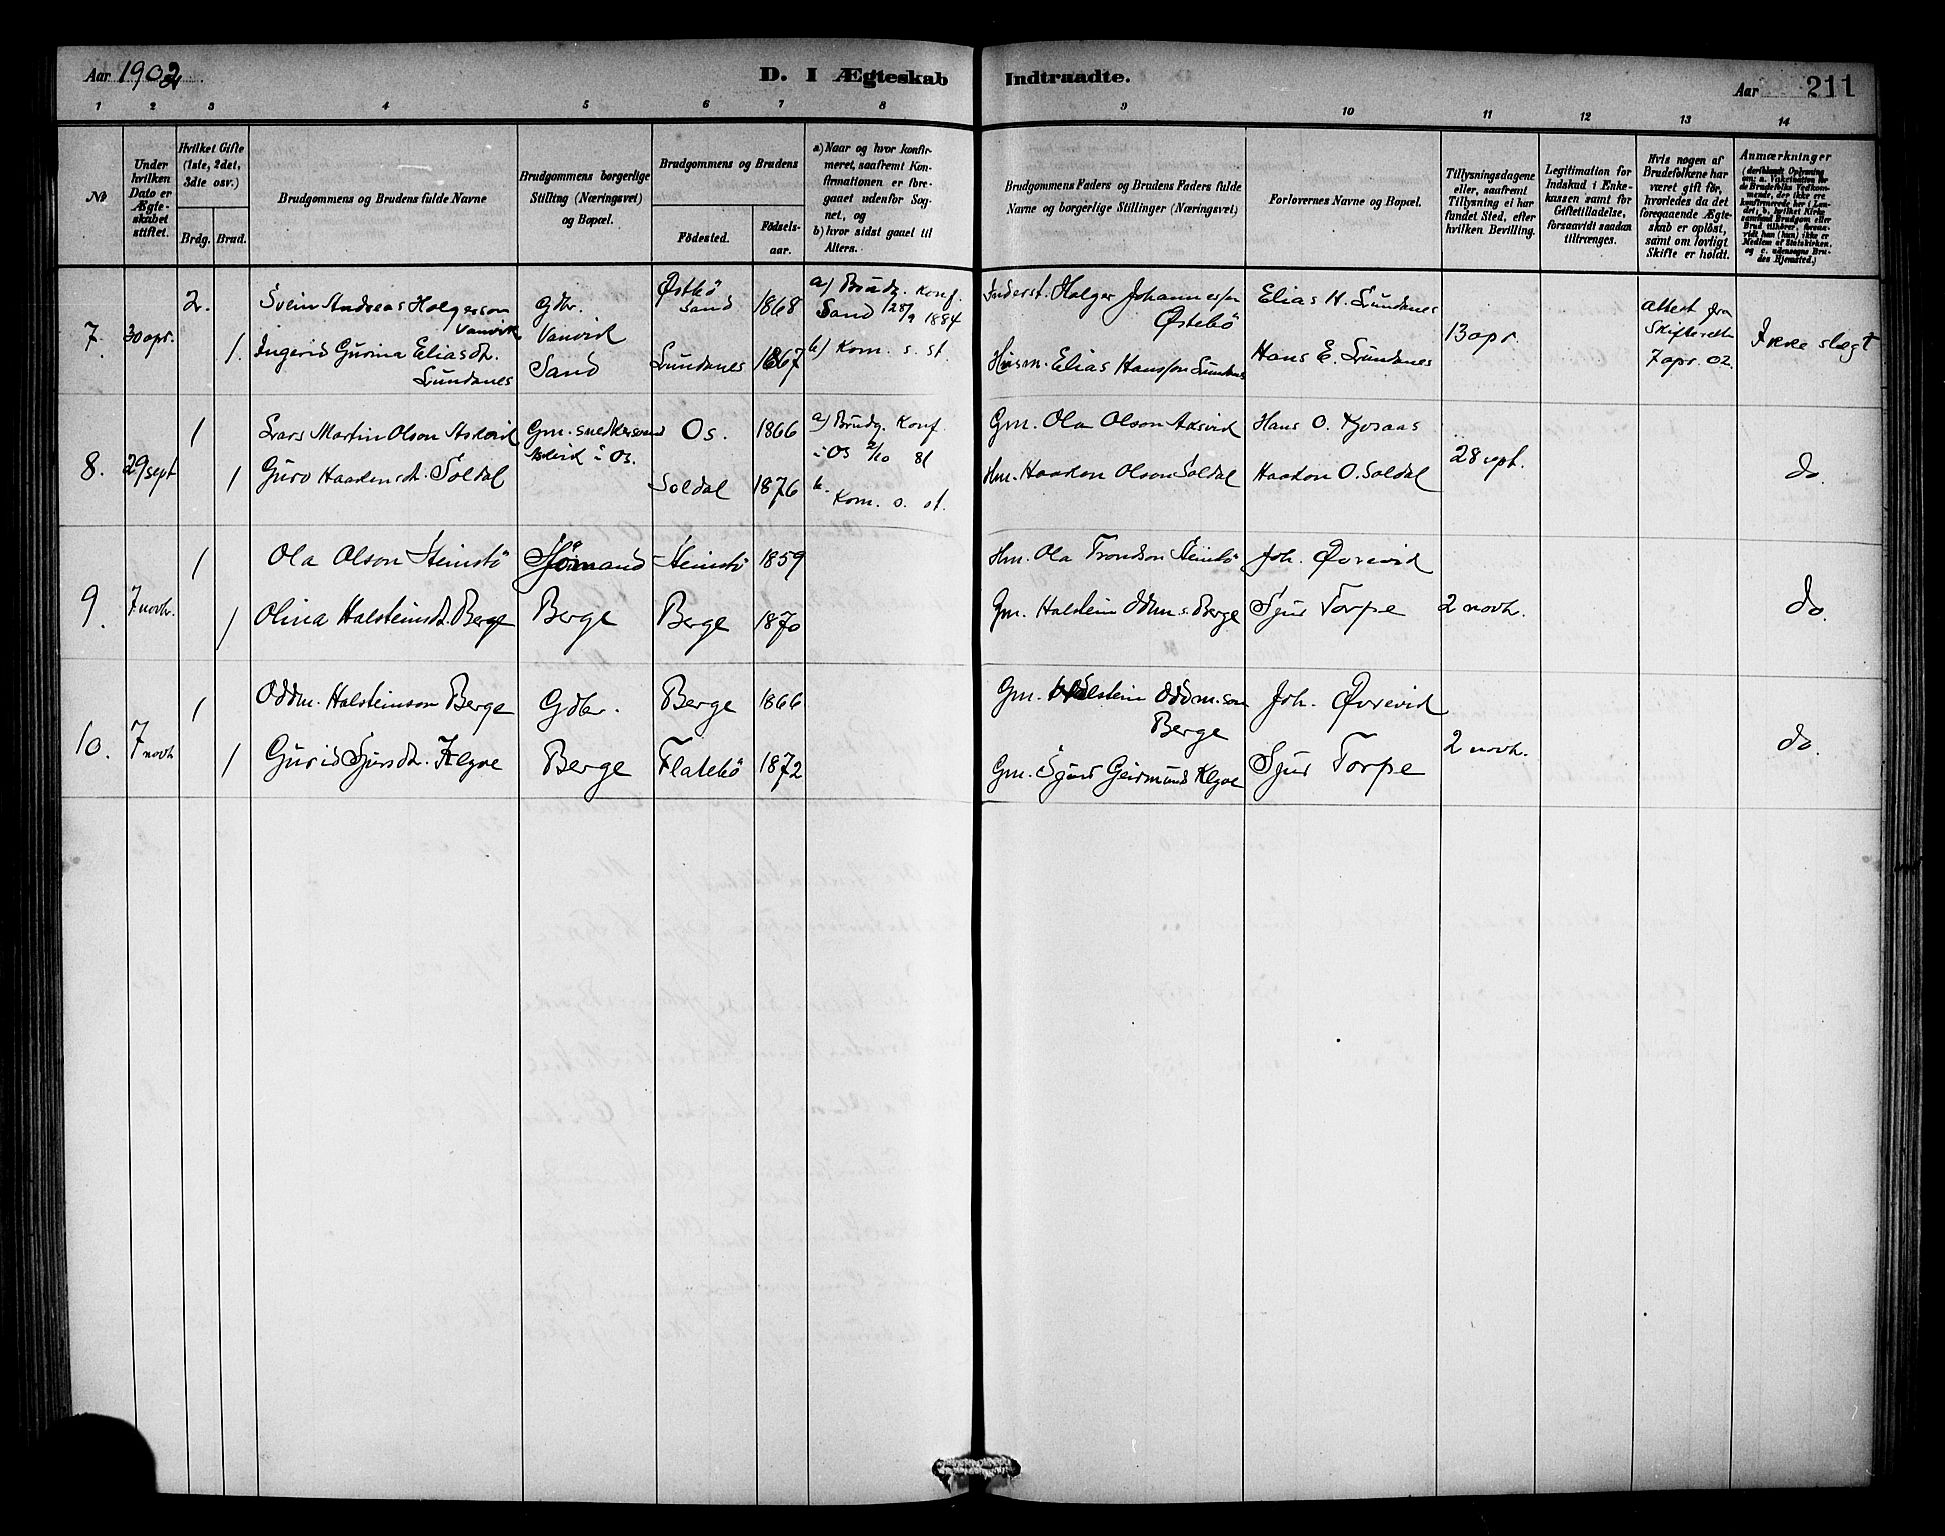 Aar 1902
D. I Ægteskab Indtraadte.
Aar 211
1 2 3 4 5 6 7 8 9 10 11 12 13 14
No
Under hvilken Dato er Ægte-skabet stiftet.
Hvilket Gifte (1ste, 2det, 3die osv.)
Brdg. Brud.
Brudgommens og Brudens fulde Navne
Brudgommens borgerlige Stilling (Næringsvei) og Bopæl.
Brudgommens og Brudens
Födested.
Födsels-aar.
a) Naar og hvor konfir-meret, saafremt Kon-firmationen er fore-gaaet udenfor Sog-net, og
b) hvor sidst gaaet til Alters.
Brudgommens Faders og Brudens Faders fulde Navne og borgerlige Stillinger (Næringsvei)
Forlovernes Navne og Bopæl.
Tillysningsdagene eller, saafremt Tillysning ei har fundet Sted, efter hvilken Bevilling.
Legitimation for Indskud i Enke-kassen samt for Giftetilladelse, forsaavidt saadan tiltrænges.
Hvis nogen af Brudefolkene har været gift för, hvorledes da det foregaaende Ægte-skab er oplöst, samt om lovligt Skifte er holdt.
Anmærkninger
7. 30 apr. 2. Svein Andreas Holgerson Vanvik Gdbr. Østbö Sand 1868 a) Brudg. Konf. Sand 28/9 1884 Inderst. Holger Johannessen Østebö Elias H. Lundanes 13 apr. Attest fra Skifteretten 7 apr. 02. Ikke slægt
1. Ingerid Gurina Eliasdt. Lundanes Vanvik Sand Lundanes 1867 b) Kom. s. st. Husm. Elias Hansson Lundanes Hans E. Lundanes
8. 29 sept 1 Lars Martin Olson Askvik Gm. snedkersvend Askvik i Os. Os. 1866 a) Brudg. Konf. i Os 2/10 81 Gm. Ola Olson Askvik Hans O. Kjosaas 28 sept. do.
1 Guro Haakensdt. Soldal Soldal 1876 b. Kom. s. st. Hm. Haakon Olson Soldal Haakon O. Soldal
9. 7 novb. 1 Ola Olson Steinstö Sjömand Steinstö 1859 Hm. Ola Trondson Steinstö Joh. Øvrevid 2 novb. do.
1 Olina Halsteinsdt. Berge Berge Berge 1870 Gm. Halstein Oddm.s. Berge Sjur Torpe
10. 7 novb 1 Oddm. Halsteinson Berge Gdbr. Berge 1866 Gm. Halstein Oddm.son Berge Joh. Øvrevid 2 novb. do.
1 Gurid Sjursdt. Klyve Berge Flatebö 1872 Gm. Sjur Geirmunds Klyve Sjur Torpe